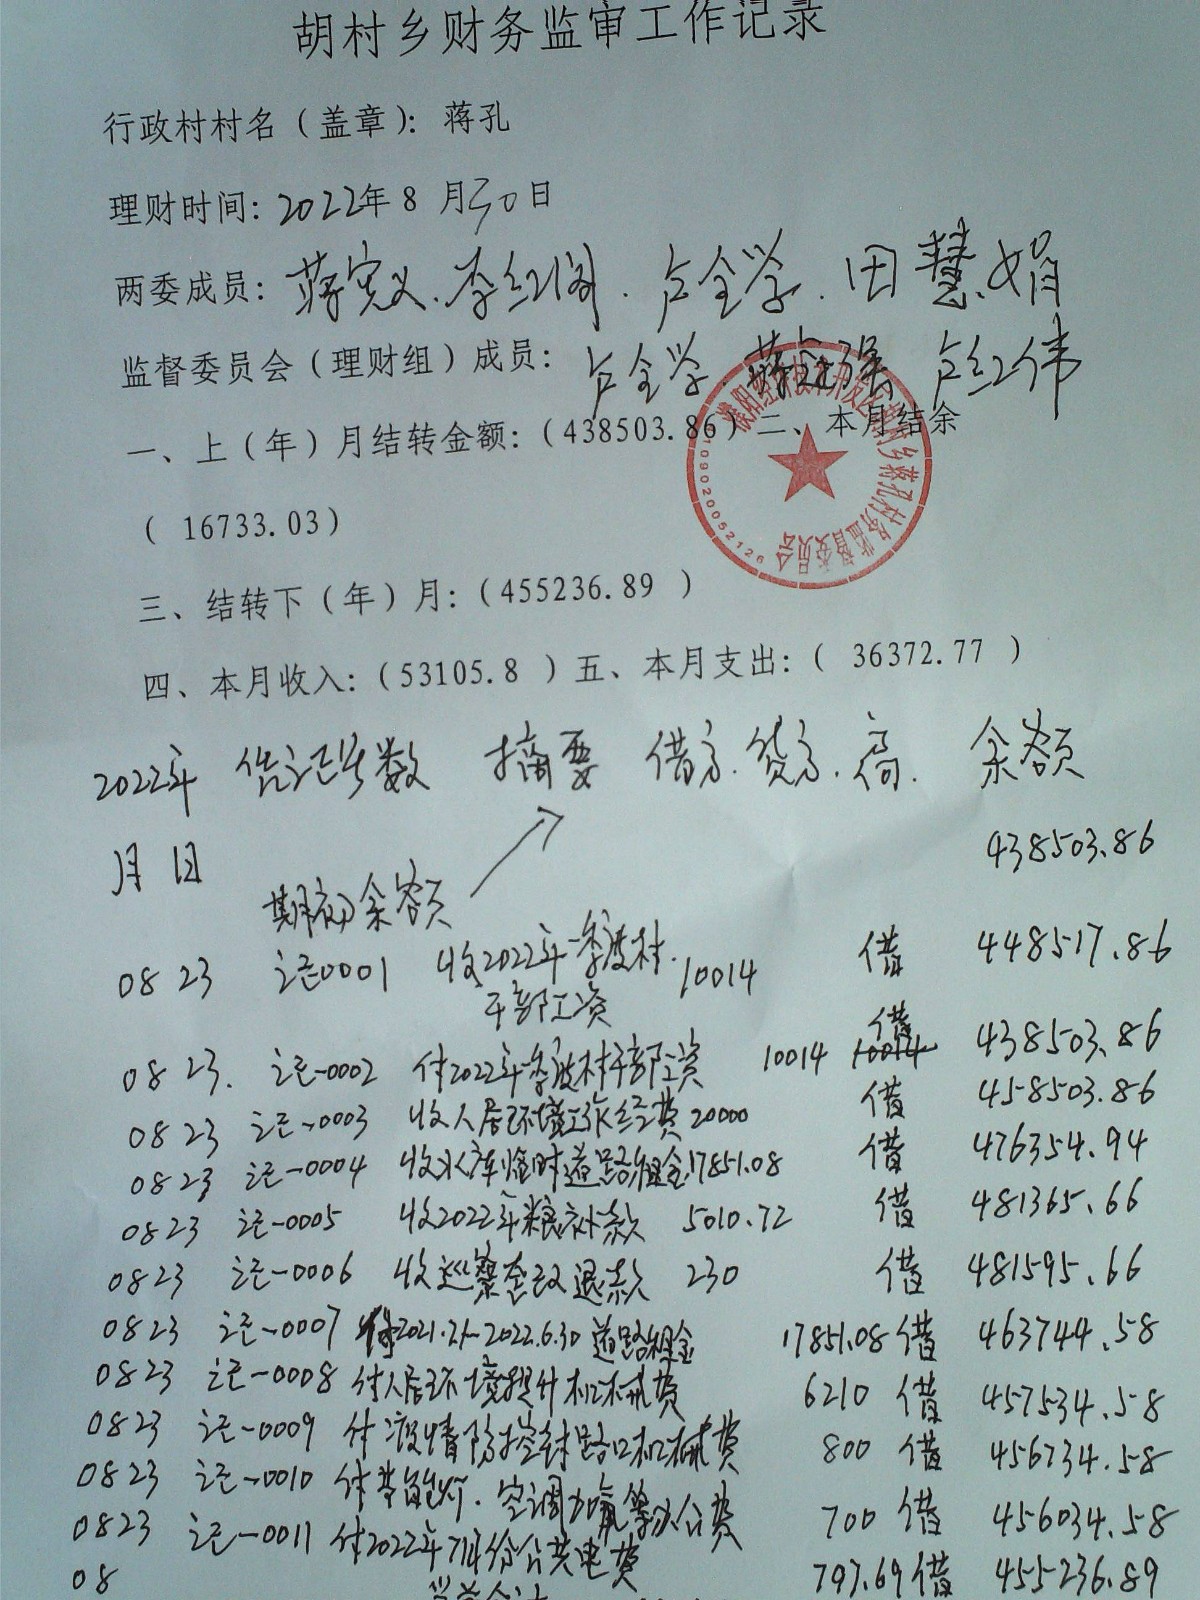 胡村乡财务监审工作记录
行政村村名（盖章）：蒋孔
理财时间：2022年8月30日
两委成员：蒋宪义、李红阁、卢全学、田慧娟
监督委员会（理财组）成员：卢全学、蒋 强 卢红伟
一、上（年）月结转金额：（438503.86）二、本月结余
（ 16733.03）
三、结转下（年）月：（455236.89 ）
四、本月收入：（53105.8 ）五、本月支出：（ 36372.77 ）
濮阳经济技术开发区胡村乡蒋孔村务监督委员会
109020052126
2022年 凭证号数 摘要 借方 贷方 方向 余额
月 日 438503.86
期初余额
08 23 记0001 收2022年一季度村干部工资 10014 借 448517.86
08 23 记-0002 付2022年一季度村干部工资 10014 借 438503.86
08 23 记-0003 收人居环境工作经费 20000 借 458503.86
08 23 记-0004 收水库临时道路租金 17851.08 借 476354.94
08 23 记-0005 收2022年粮补款 5010.72 借 481365.66
08 23 记-0006 收巡察整改退款 230 借 481595.66
08 23 记-0007 付2021.7.1-2022.6.30道路租金 17851.08 借 463744.58
08 23 记-0008 付人居环境提升机械费 6210 借 457534.58
08 23 记-0009 付疫情防控封路口机械费 800 借 456734.58
08 23 记-0010 付节能灯、空调加氟等办公费 700 借 456034.58
08 23 记-0011 付2022年7月份公共电费 797.69 借 455236.89
08